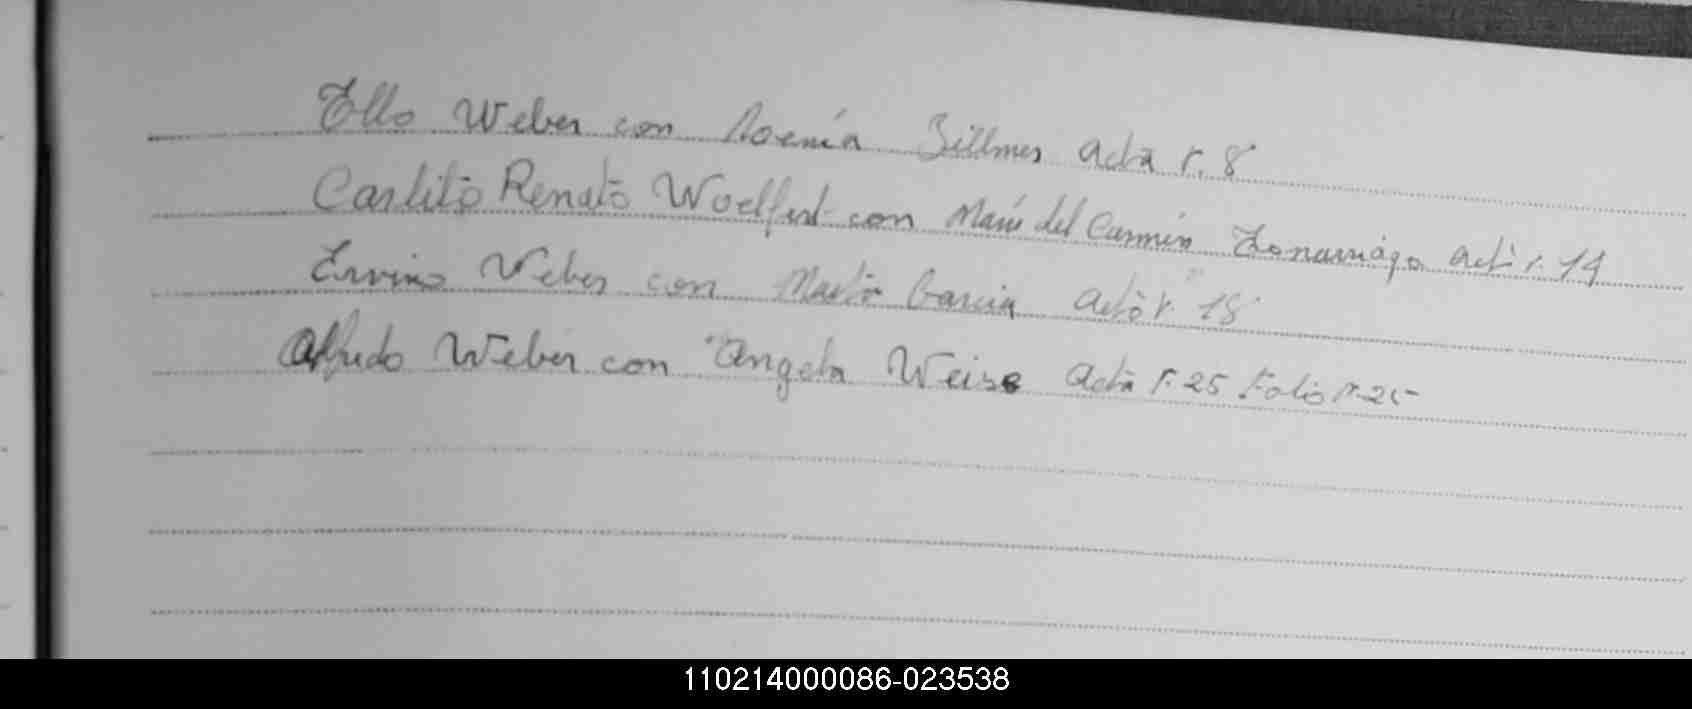 Ello Weber con Noemía Billmes acta n. 8
Carlito Renato Woelfert con María del Carmen acta n. 14
Ervino Weber con Marta Garcia acta n. 18
Alfredo Weber con Angela Weise acta n. 25 Folio n. 25
110214000086-023538